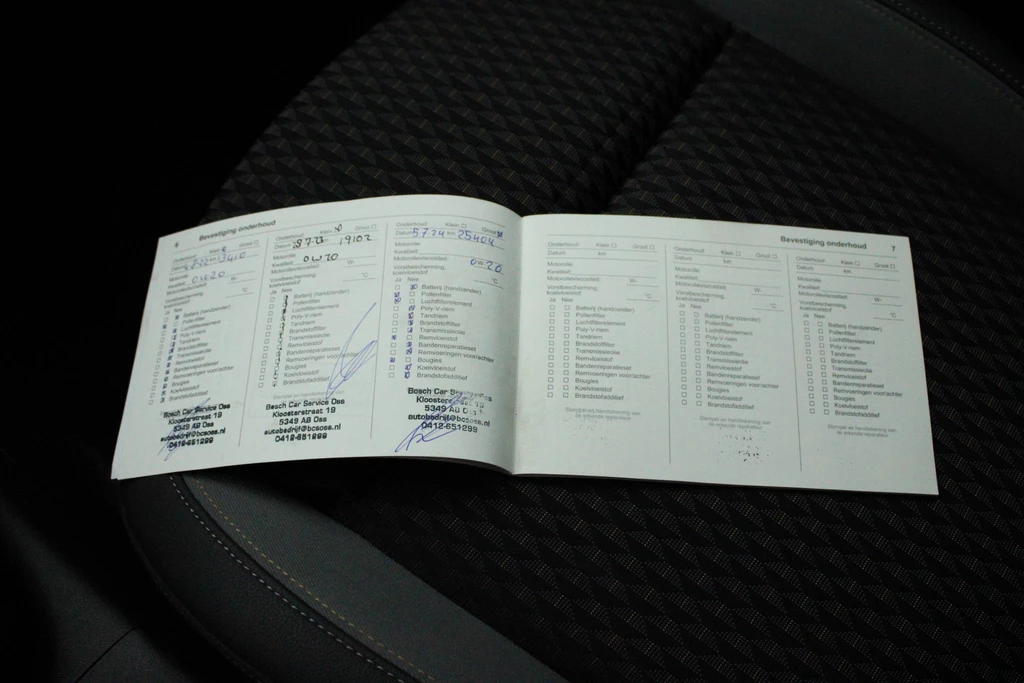 6 Bevestiging onderhoud
Onderhoud Klein Groot
Datum 13410
Motorolie
Kwaliteit 0W20
Motorolieviscositeit W-
Vorstbescherming koelvloeistof °C
Ja Nee
Batterij (handzender)
Pollenfilter
Luchtfilterelement
Poly-V-riem
Tandriem
Brandstoffilter
Transmissieolie
Remvloeistof
Bandenreparatieset
Remvoeringen voor/achter
Bougies
Koelvloeistof
Brandstofadditief
Bosch Car Service Oss
Kloosterstraat 19
5349 AB Oss
autobedrijf@bcsoss.nl
0412-651299
Onderhoud Klein Groot
Datum 19102
Motorolie
Kwaliteit 0W20
Motorolieviscositeit W-
Vorstbescherming,
koelvloeistof °C
Ja Nee
Batterij (handzender)
Pollenfilter
Luchtfilterelement
Poly-V-riem
Tandriem
Brandstoffilter
Transmissieolie
Remvloeistof
Bandenreparatieset
Remvoeringen voor/achter
Bougies
Koelvloeistof
Brandstofadditief
Bosch Car Service Oss
Kloosterstraat 19
5349 AB Oss
autobedrijf@bcsoss.nl
0412-651299
Onderhoud Klein Groot
Datum 5.7.24 km 25404
Motorolie
Kwaliteit 0W20
Motorolieviscositeit W-
Vorstbescherming,
koelvloeistof °C
Ja Nee
Batterij (handzender)
Pollenfilter
Luchtfilterelement
Poly-V-riem
Tandriem
Brandstoffilter
Transmissieolie
Remvloeistof
Bandenreparatieset
Remvoeringen voor/achter
Bougies
Koelvloeistof
Brandstofadditief
Bosch Car
5349 AB Oss
0412-651299
Bevestiging onderhoud 7
Onderhoud Klein Groot
Datum km
Motorolie
Kwaliteit
Motorolieviscositeit W-
Vorstbescherming,
koelvloeistof °C
Ja Nee
Batterij (handzender)
Pollenfilter
Luchtfilterelement
Poly-V-riem
Tandriem
Brandstoffilter
Transmissieolie
Remvloeistof
Bandenreparatieset
Remvoeringen voor/achter
Bougies
Koelvloeistof
Brandstofadditief
Stempel en handtekening van
de erkende reparateur
Onderhoud Klein Groot
Datum km
Motorolie
Kwaliteit
Motorolieviscositeit W-
Vorstbescherming,
koelvloeistof °C
Ja Nee
Batterij (handzender)
Pollenfilter
Luchtfilterelement
Poly-V-riem
Tandriem
Brandstoffilter
Transmissieolie
Remvloeistof
Bandenreparatieset
Remvoeringen voor/achter
Bougies
Koelvloeistof
Brandstofadditief
Stempel en handtekening van
de erkende reparateur
Onderhoud Klein Groot
Datum km
Motorolie
Kwaliteit
Motorolieviscositeit W-
Vorstbescherming,
koelvloeistof °C
Ja Nee
Batterij (handzender)
Pollenfilter
Luchtfilterelement
Poly-V-riem
Tandriem
Brandstoffilter
Transmissieolie
Remvloeistof
Bandenreparatieset
Remvoeringen voor/achter
Bougies
Koelvloeistof
Brandstofadditief
Stempel en handtekening van
de erkende reparateur